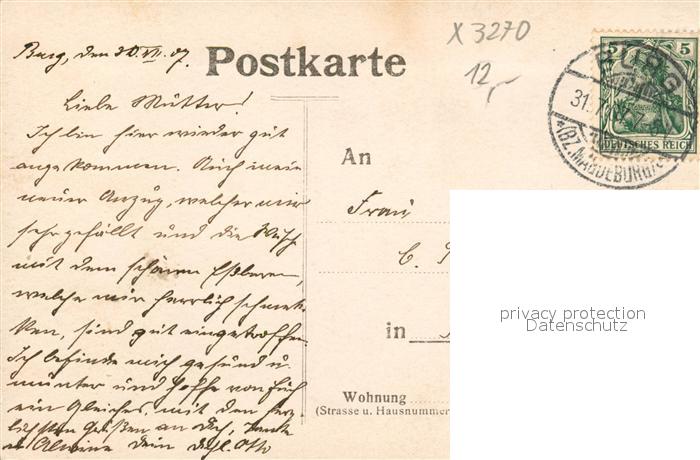 Burg, den 30.VII.07.
Postkarte
X 3270
12,-
5 5
BURG
31.7
*(BZ.MAGDEBURG)
DEUTSCHES REICH
Liebe Mutter!
Ich bin hier wieder gut
angekommen. Auch mein
neuer Anzug, welcher mir
sehr gefällt und die
mit dem schönen Eßbaren,
welche mir herrlich schmek-
ken, sind gut eingetroffen.
Ich befinde mich gesund u.
munter und hoffe von Euch
ein Gleiches, mit den herz-
lichsten Grüßen an Dich, Tante
Alwine Dein Otto
An
Frau
C.
in
Wohnung
(Strasse u. Hausnummer
privacy protection
Datenschutz